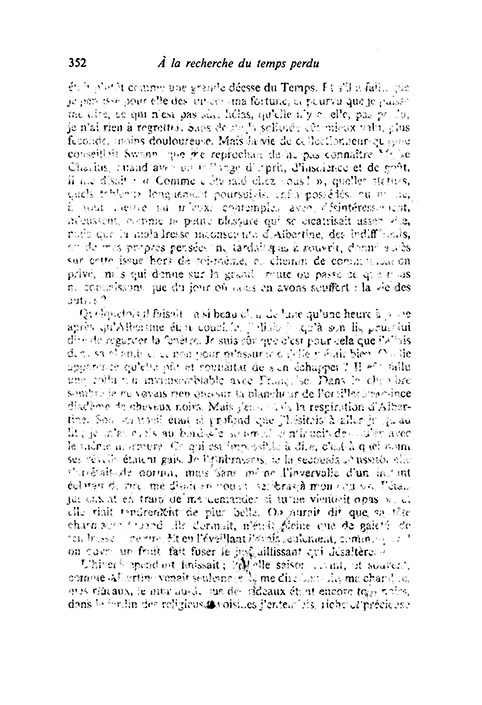 352 À la recherche du temps perdu
comme une grande déesse du Temps.
pour elle des ma fortune, et pourvu que je puisse
me dire, ce qui n'est pas hélas, qu'elle n'y elle, pas
je n'ai rien à regretter. Sans la solitude mieux valu, plus
féconde, moins douloureuse. Mais la vie de collectionneur
conseillait Swann, que me reprochait de ne pas connaître M. de
Charlus, quand avec un d'esprit, d'insolence et de goût,
il me disait : « Comme c'est laid chez vous ! », quelles statues,
quels tableaux longuement poursuivis, enfin possédés, ou même,
à tout contemplés avec désintéressement,
m'eussent, comme la petite blessure qui se cicatrisait assez vite,
mais que la maladresse inconsciente d'Albertine, des indifférents,
ou de mes propres pensées, ne tardait pas à rouvrir, donné accès
sur cette issue hors de soi-même, ce chemin de communication
privé, mais qui donne sur la grande route où passe ce que nous
ne connaissons que du jour où nous en avons souffert : la vie des
autres ?
Quelquefois il faisait un si beau clair de lune qu'une heure à peine
après qu'Albertine était couchée, j'allais jusqu'à son lit pour lui
dire de regarder la fenêtre. Je suis sûr que c'est pour cela que j'allais
dans sa chambre et non pour m'assurer qu'elle y était bien. Quelle
apparence qu'elle pût et souhaitât de s'en échapper ? Il eût fallu
une collusion invraisemblable avec Françoise. Dans la chambre
sombre je ne voyais rien que sur la blancheur de l'oreiller mince
diadème de cheveux noirs. Mais j'entendais la respiration d'Alber-
tine. Son sommeil était si profond que j'hésitais à aller jusqu'au
lit ; je m'asseyais au bord ; le sommeil continuait de couler avec
le même murmure. Ce qui est impossible à dire, c'est à quel point
ses réveils étaient gais. Je l'embrassais, je la secouais. Aussitôt elle
s'arrêtait de dormir, mais sans même l'intervalle d'un instant
éclatait de rire, me disait en nouant ses bras à mon cou : « J'étais
justement en train de me demander si tu ne viendrais pas », et
elle riait tendrement de plus belle. On aurait dit que sa tête
charmante, quand elle dormait, n'était pleine que de gaîté, de
tendresse et de rire. Et en l'éveillant j'avais seulement, comme quand
on ouvre un fruit, fait fuser le jus jaillissant qui désaltère.
L'hiver cependant finissait ; la belle saison revint, et souvent,
comme Albertine venait seulement de me dire bonsoir, ma chambre,
mes rideaux, le mur au-dessus des rideaux étant encore tout noirs,
dans le jardin des religieuses voisines j'entendais, riche et précieuse